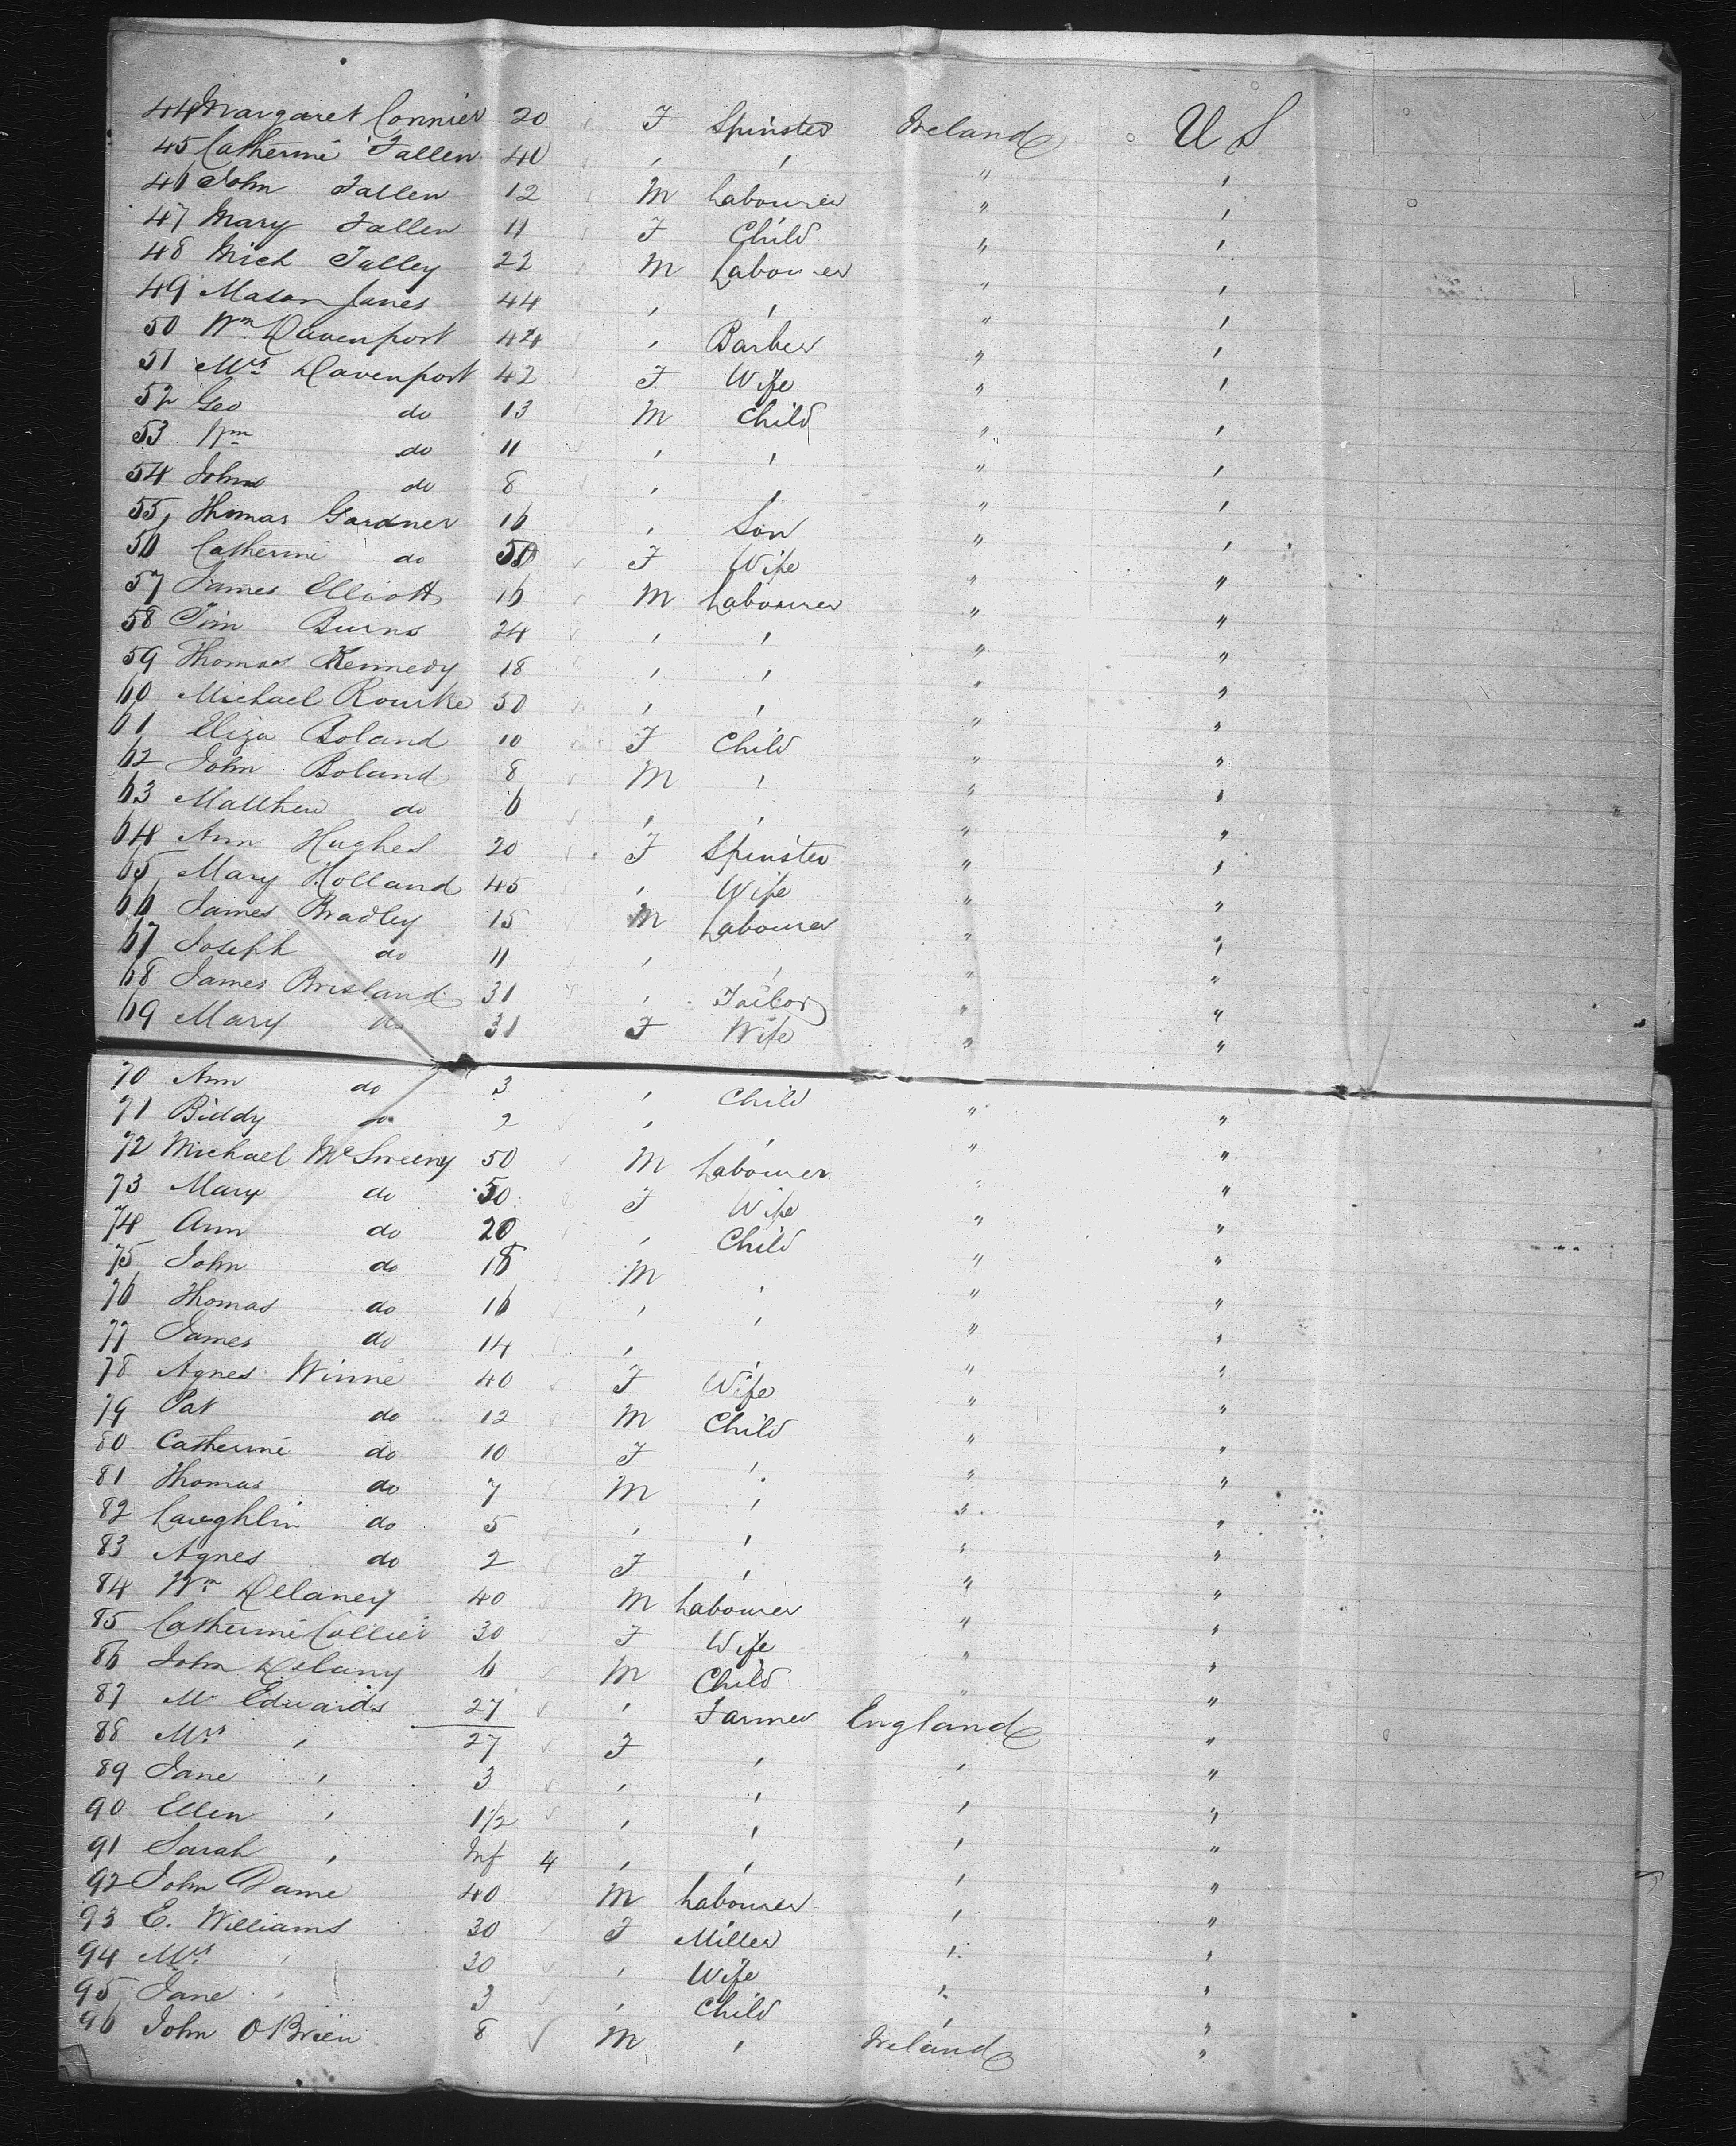 44 Margaret Connier 20 F Spinster Ireland U S
45 Catherine Fallen 40 , , " ,
46 John Fallen 12 M Labourer " ,
47 Mary Fallen 11 F Child " ,
48 Mich Talley 22 M Labourer " ,
49 Mason Janes 44 , , " ,
50 Wm Davenport 44 , Barber " ,
51 Mrs Davenport 42 F Wife " ,
52 Geo do 13 M Child " ,
53 Wm do 11 , , " ,
54 John do 8 , , " ,
55 Thomas Gardner 16 , Son " ,
56 Catherine do 50 F Wife " "
57 James Elliott 16 M Labourer " "
58 Tim Burns 24 , , " "
59 Thomas Kennedy 18 , , " "
60 Michael Rourke 50 , , " "
61 Eliza Boland 10 F Child " "
62 John Boland 8 M , " "
63 Matthew do 6 , , " "
64 Ann Hughes 20 F Spinster " "
65 Mary Holland 45 , Wife " "
66 James Bradley 15 M Labourer " "
67 Joseph do 11 , , " "
68 James Brisland 31 , Tailor " "
69 Mary do 31 F Wife " "
70 Ann do 3 , Child " "
71 Biddy do 2 , , " "
72 Michael McSweeny 50 M Labourer " "
73 Mary do 50 F Wife " "
74 Ann do 20 , Child " "
75 John do 18 M , " "
76 Thomas do 16 , , " "
77 James do 14 , , " "
78 Agnes Winne 40 F Wife " "
79 Pat do 12 M Child " "
80 Catherine do 10 F , " "
81 Thomas do 7 M , " "
82 Laughlin do 5 , , " "
83 Agnes do 2 F , " "
84 Wm Delaney 40 M Labourer " "
85 Catherine Collier 30 F Wife " "
86 John Delany 6 M Child " "
87 Mr Edwards 27 , Farmer England "
88 Mrs , 27 F , , "
89 Jane , 3 , , , "
90 Ellen , 1 1/2 , , , "
91 Sarah , Inf 4 , , , "
92 John Dame 40 M Labourer , "
93 E. Williams 30 F Miller , "
94 Mrs , 30 , Wife , "
95 Jane , 3 , Child , "
96 John OBrien 8 M , Ireland "